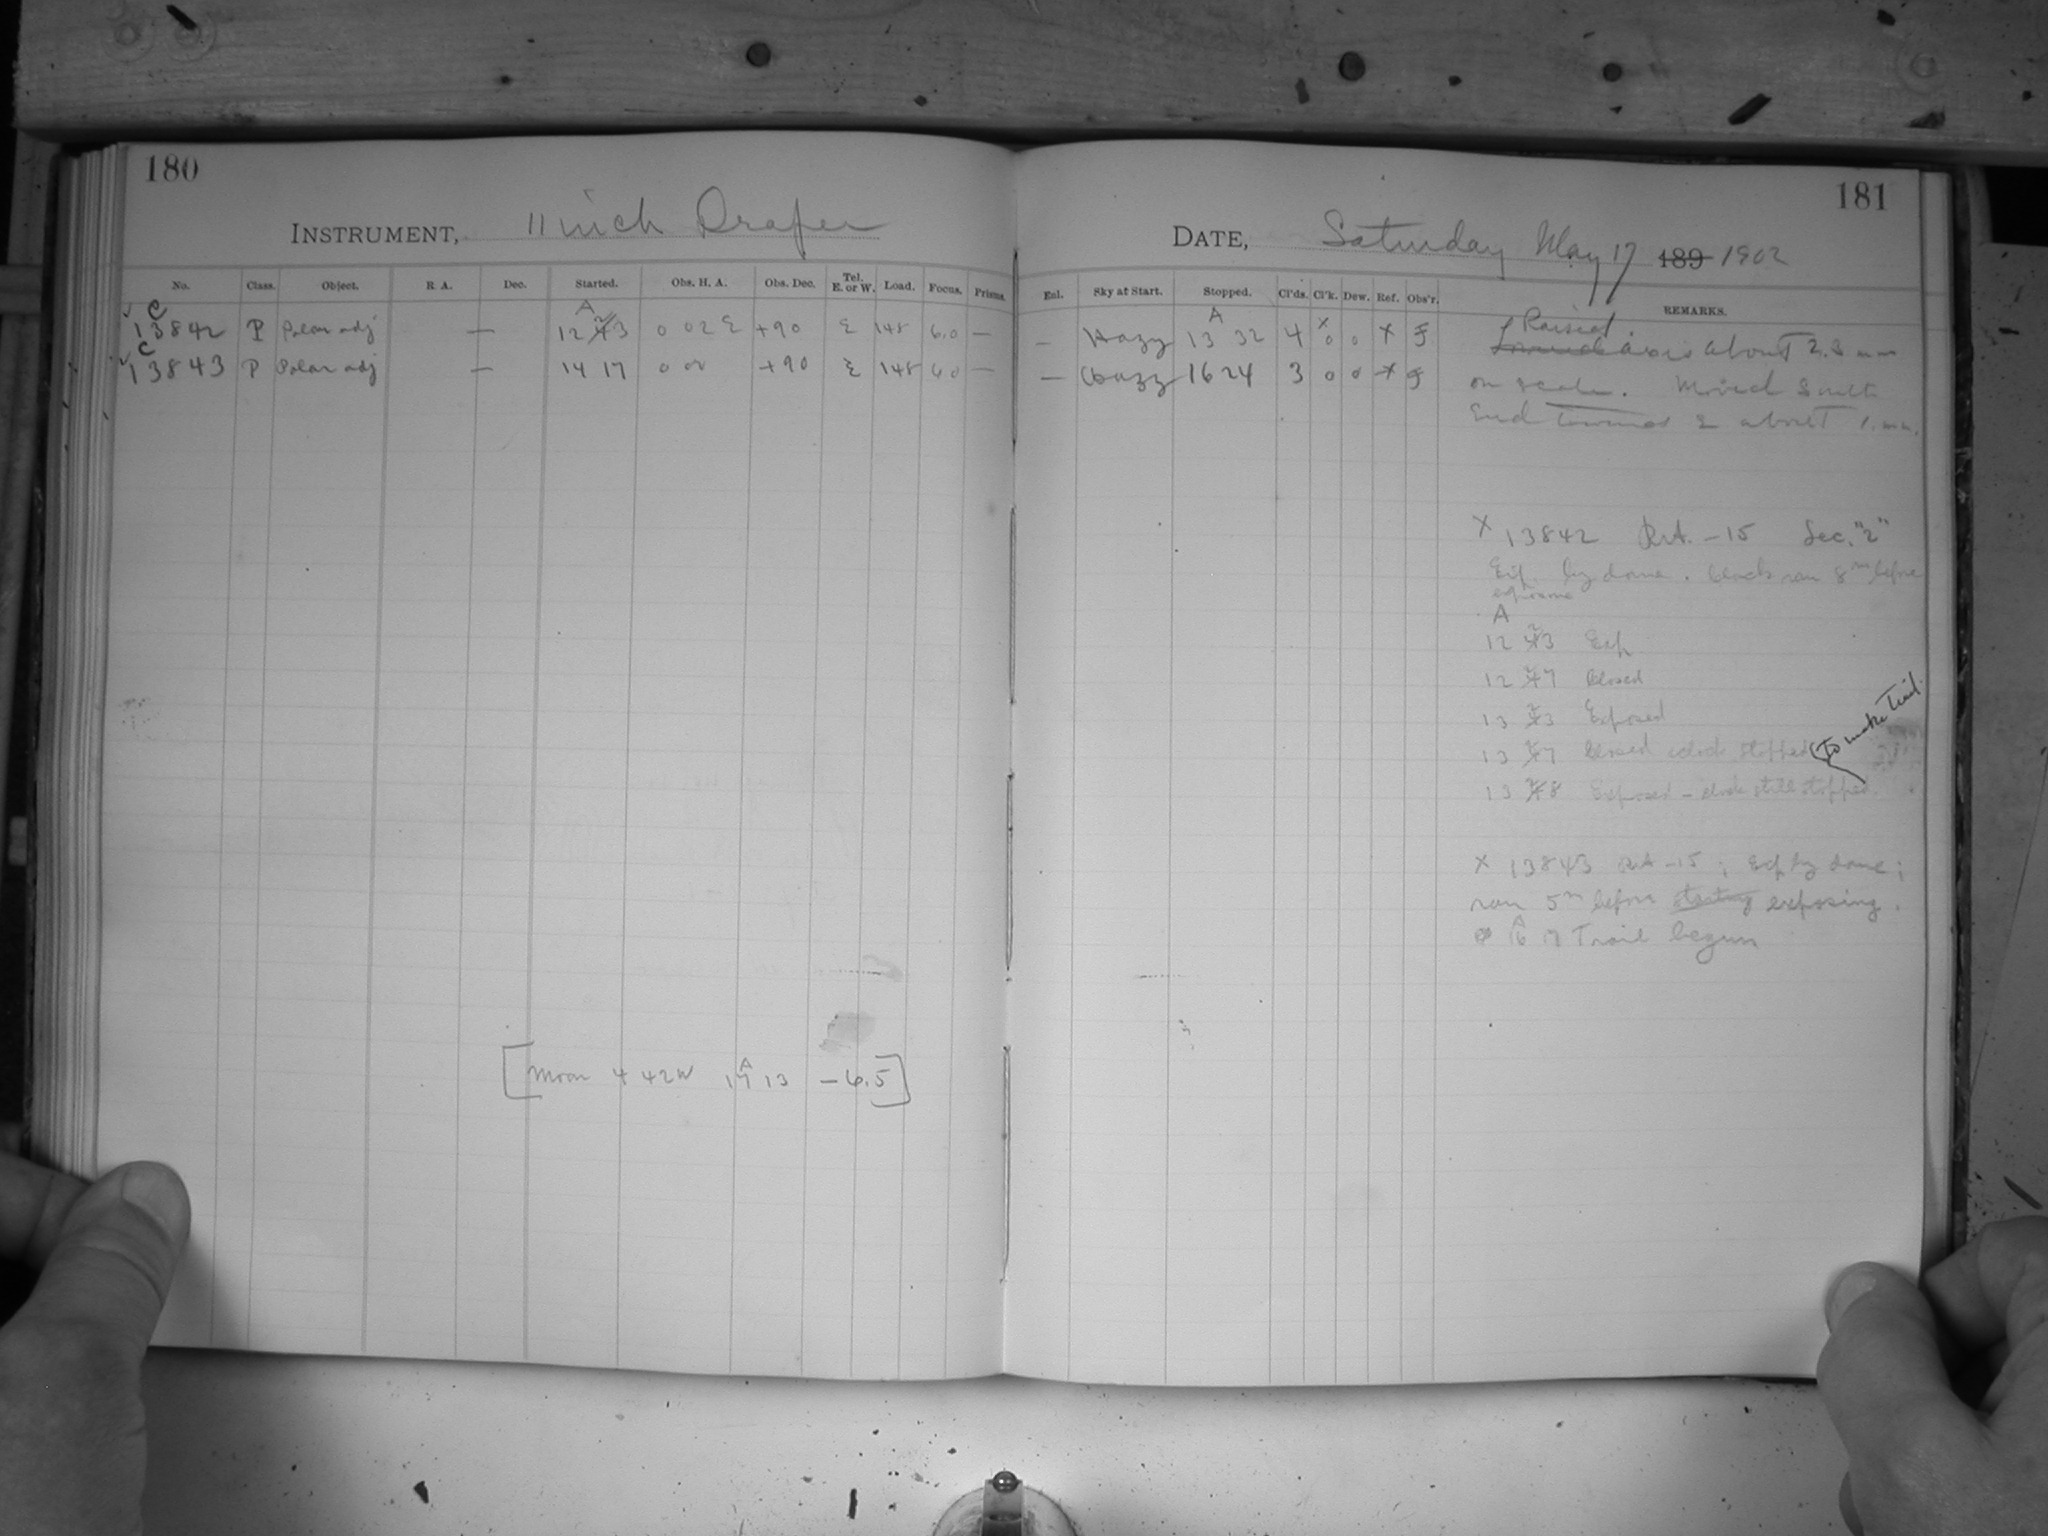 180
INSTRUMENT, 11 inch Draper
No. Class. Object. R. A. Dec. Started. Obs. H. A. Obs. Dec. Tel. E. or W. Load. Focus. Prisms.
C A
13842 P Polar adj — 12 23 0 02 E +90 E 148 6.0 —
C
13843 P Polar adj — 14 17 0 00 +90 E 148 6.0 —
[Moon 4 42W 17 13 −6.5]
A
181
DATE, Saturday May 17 189 1902
Enl. Sky at Start. Stopped. Cl'ds. Cl'k. Dew. Ref. Obs'r. REMARKS.
A
— Hazy 13 32 4 x 0 0 x
— Hazy 16 24 3 0 0 x
Raised
Lowered axis about 2.3 mm
on scale. Moved South
End towards E about 1. mm.
X 13842 R.A. −15 Sec. "2"
Exp. by dome. Clock ran 8m before
exposure
A
12 23 Exp
12 27 Closed
13 23 Exposed
13 27 Closed clock stopped (to make Trail.
13 28 Exposed – clock still stopped.
X 13843 RA −15 ; Exp by dome ;
ran 5m before starting exposing.
A
16 17 Trail begun